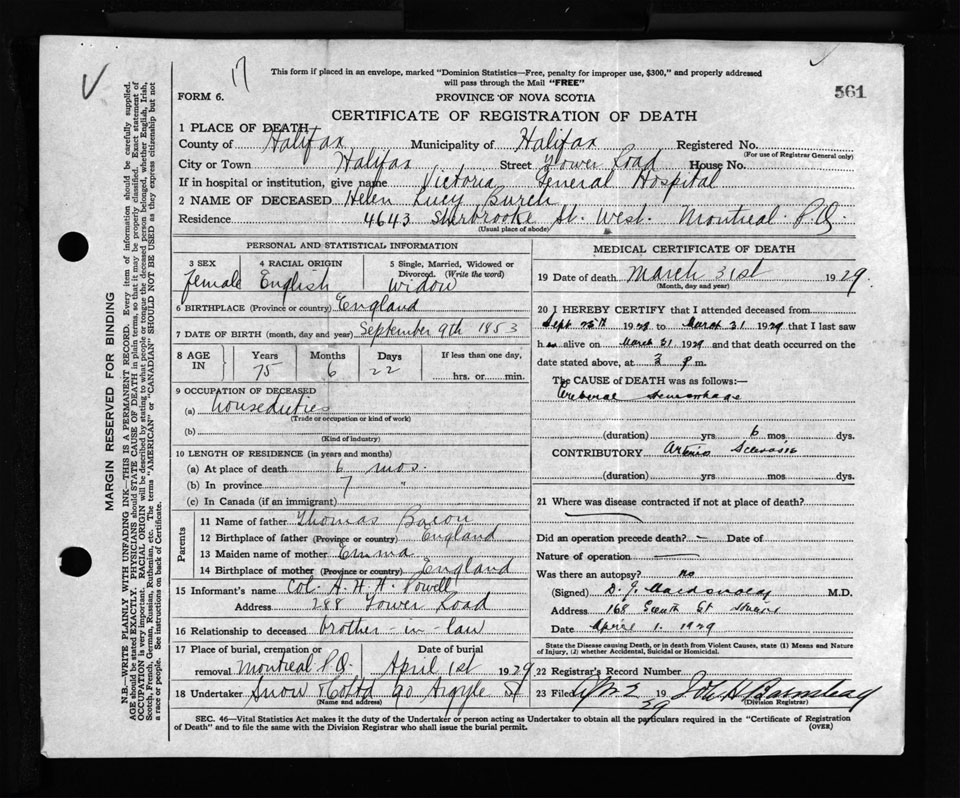 17
This form if placed in an envelope, marked "Dominion Statistics—Free, penalty for improper use, $300," and properly addressed
will pass through the Mail "FREE"
FORM 6.
PROVINCE OF NOVA SCOTIA
561
CERTIFICATE OF REGISTRATION OF DEATH
1 PLACE OF DEATH
County of Halifax Municipality of Halifax Registered No.
(For use of Registrar General only)
City or Town Halifax Street Tower Road House No.
If in hospital or institution, give name Victoria General Hospital
2 NAME OF DECEASED Helen Lucy Burch
Residence 4643 Sherbrooke St. West. Montreal P.Q.
(Usual place of abode)
PERSONAL AND STATISTICAL INFORMATION
3 SEX 4 RACIAL ORIGIN 5 Single, Married, Widowed or
Divorced. (Write the word)
female English widow
6 BIRTHPLACE (Province or country) England
7 DATE OF BIRTH (month, day and year) September 9th 1853
8 AGE IN Years Months Days If less than one day,
75 6 22 hrs. or min.
9 OCCUPATION OF DECEASED
(a) Houseduties
(Trade or occupation or kind of work)
(b)
(Kind of industry)
10 LENGTH OF RESIDENCE (in years and months)
(a) At place of death 6 mos.
(b) In province 7 "
(c) In Canada (if an immigrant)
Parents
11 Name of father Thomas Bacon
12 Birthplace of father (Province or country) England
13 Maiden name of mother Emma
14 Birthplace of mother (Province or country) England
15 Informant's name Col. A. H. H. Powell
Address 288 Tower Road
16 Relationship to deceased brother-in-law
17 Place of burial, cremation or Date of burial
removal Montreal P.Q. April 1st 1929
18 Undertaker Snow & Co Ltd 90 Argyle St
(Name and address)
MEDICAL CERTIFICATE OF DEATH
19 Date of death March 31st 1929.
(Month, day and year)
20 I HEREBY CERTIFY that I attended deceased from
Sept 25th 1928 to March 31 1929 that I last saw
her alive on March 31 1929 and that death occurred on the
date stated above, at 3 p m.
The CAUSE of DEATH was as follows:—
Cerebral Hemorrhage
(duration) yrs 6 mos dys.
CONTRIBUTORY Arterio Sclerosis
(duration) yrs mos dys.
21 Where was disease contracted if not at place of death?
Did an operation precede death? – Date of
Nature of operation —
Was there an autopsy? no
(Signed) D. J. M.D.
Address 168 South St
Date April 1. 1929
State the Disease causing Death, or in death from Violent Causes, state (1) Means and Nature
of Injury, (2) whether Accidental, Suicidal or Homicidal.
22 Registrar's Record Number
23 Filed 19 29 Barnstead
(Division Registrar)
SEC. 46—Vital Statistics Act makes it the duty of the Undertaker or person acting as Undertaker to obtain all the particulars required in the "Certificate of Registration
of Death" and to file the same with the Division Registrar who shall issue the burial permit.
(OVER)
MARGIN RESERVED FOR BINDING
N.B.—WRITE PLAINLY WITH UNFADING INK—THIS IS A PERMANENT RECORD. Every item of information should be carefully supplied.
AGE should be stated EXACTLY. PHYSICIANS should STATE CAUSE OF DEATH in plain terms, so that it may be properly classified. Exact statement of
OCCUPATION is very important. RACIAL ORIGIN will be described by stating to what people or tongue the deceased person belonged, whether English, Irish,
Scotch, French, German, Russian, Ruthenian, etc. The terms "AMERICAN" or "CANADIAN" SHOULD NOT BE USED as they express citizenship but not
a race or people. See instructions on back of Certificate.